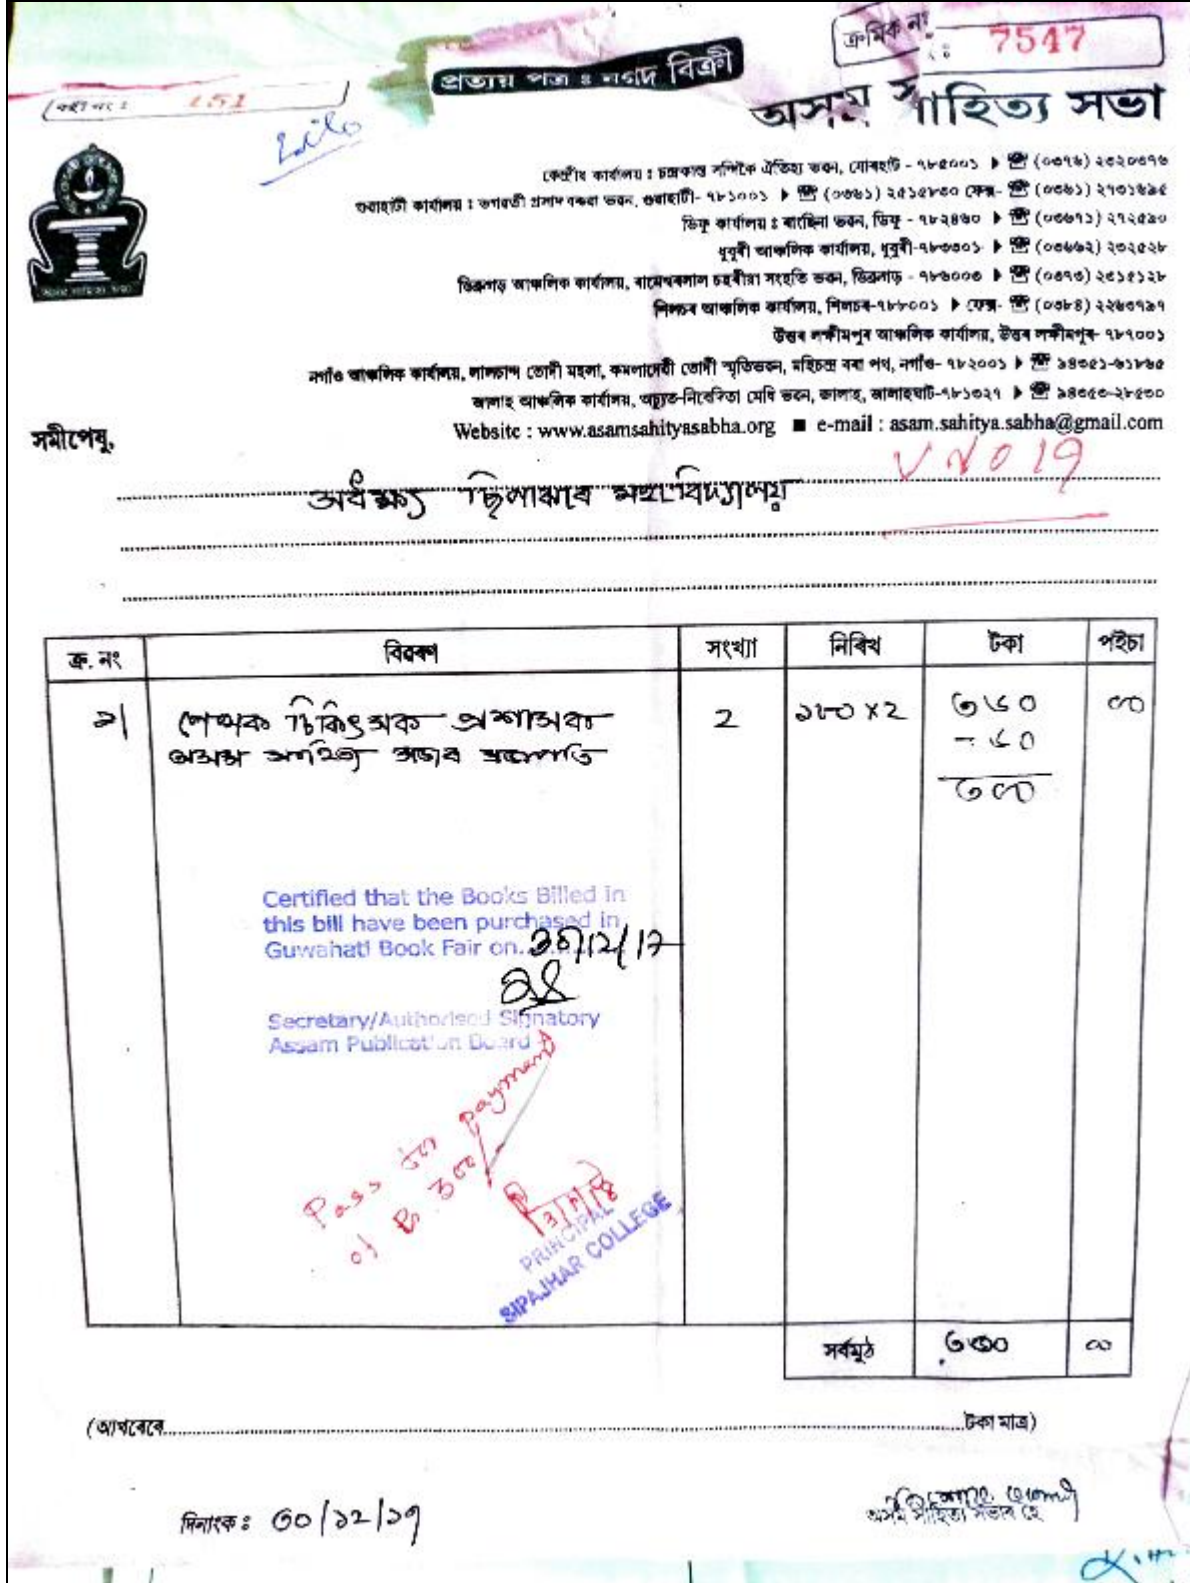 ক্রমিক নং : 7547
প্রত্যয় পত্র : নগদ বিক্ৰী
বহী নং : 151
অসম সাহিত্য সভা
কেন্দ্ৰীয় কাৰ্যালয় : চন্দ্ৰকান্ত সন্দিকৈ ঐতিহ্য ভৱন, যোৰহাট - ৭৮৫০০১ ▶ ☎ (০৩৭৬) ২৩২০৩৭৬
গুৱাহাটী কাৰ্যালয় : ভগৱতী প্ৰসাদ বৰুৱা ভৱন, গুৱাহাটী- ৭৮১০০১ ▶ ☎ (০৩৬১) ২৫১৫৮৩০ ফেক্স- ☎ (০৩৬১) ২৭৩১৬৯৫
ডিফু কাৰ্যালয় : ৰাংছিনা ভৱন, ডিফু - ৭৮২৪৬০ ▶ ☎ (০৩৬৭১) ২৭২৫৯০
ধুবুৰী আঞ্চলিক কাৰ্যালয়, ধুবুৰী-৭৮৩৩০১ ▶ ☎ (০৩৬৬২) ২৩২৫২৮
ডিব্ৰুগড় আঞ্চলিক কাৰ্যালয়, ৰামেশ্বৰলাল চহৰীয়া সংহতি ভৱন, ডিব্ৰুগড় - ৭৮৬০০৩ ▶ ☎ (০৩৭৩) ২৩১৫১২৮
শিলচৰ আঞ্চলিক কাৰ্যালয়, শিলচৰ-৭৮৮০০১ ▶ ফেক্স- ☎ (০৩৮৪) ২২৬৩৭৯৭
উত্তৰ লক্ষীমপুৰ আঞ্চলিক কাৰ্যালয়, উত্তৰ লক্ষীমপুৰ- ৭৮৭০০১
নগাঁও আঞ্চলিক কাৰ্যালয়, লালচান্দ তোদী মহলা, কমলাদেৱী তোদী স্মৃতিভৱন, মহিচন্দ্ৰ বৰা পথ, নগাঁও- ৭৮২০০১ ▶ ☎ ৯৪৩৫১-৬১৮৬৫
জালাহ আঞ্চলিক কাৰ্যালয়, অচ্যুত-নিবেদিতা মেধি ভৱন, জালাহ, জালাহঘাট-৭৮১৩২৭ ▶ ☎ ৯৪৩৫৩-২৮৫৩০
Website : www.asamsahityasabha.org ■ e-mail : asam.sahitya.sabha@gmail.com
সমীপেষু,
V N 019
অধ্যক্ষ্য ছিপাঝাৰ মহাবিদ্যালয়
ক্ৰ. নং বিৱৰণ সংখ্যা নিৰিখ টকা পইচা
১| লেখক চিকিৎসক প্ৰশাসক 2 ১৮০ x 2 ৩৬০ ০০
অসম সাহিত্য সভাৰ সভাপতি – ৬০
৩০০
Certified that the Books Billed in
this bill have been purchased in
Guwahati Book Fair on. 30/12/17
Secretary/Authorised Signatory
Assam Publication Board
Pass for payment
of Rs 300/
PRINCIPAL
SIPAJHAR COLLEGE
সৰ্বমুঠ ৩০০ ০০
(আখৰেৰে..............................টকা মাত্ৰ)
দিনাংক : ৩০/১২/১৭
অসম সাহিত্য সভাৰ হৈ